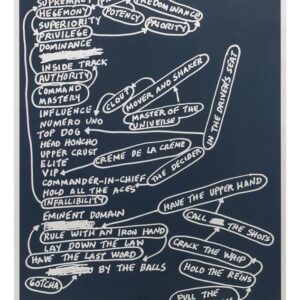 SUPREMACY
PREDOMINANCE
HEGEMONY
POTENCY
SUPERIORITY
PRIORITY
PRIVILEGE
DOMINANCE
INSIDE TRACK
AUTHORITY
COMMAND
MASTERY
CLOUT
MOVER AND SHAKER
INFLUENCE
MASTER OF THE
UNIVERSE
NUMERO UNO
TOP DOG
IN THE DRIVER'S SEAT
HEAD HONCHO
UPPER CRUST
CRÈME DE LA CRÈME
ELITE
THE DECIDER
VIP
COMMANDER-IN-CHIEF
HOLD ALL THE ACES
INFALLIBILITY
HAVE THE UPPER HAND
EMINENT DOMAIN
CALL THE SHOTS
RULE WITH AN IRON HAND
LAY DOWN THE LAW
CRACK THE WHIP
HAVE THE LAST WORD
HOLD THE REINS
BY THE BALLS
GOTCHA
PULL THE